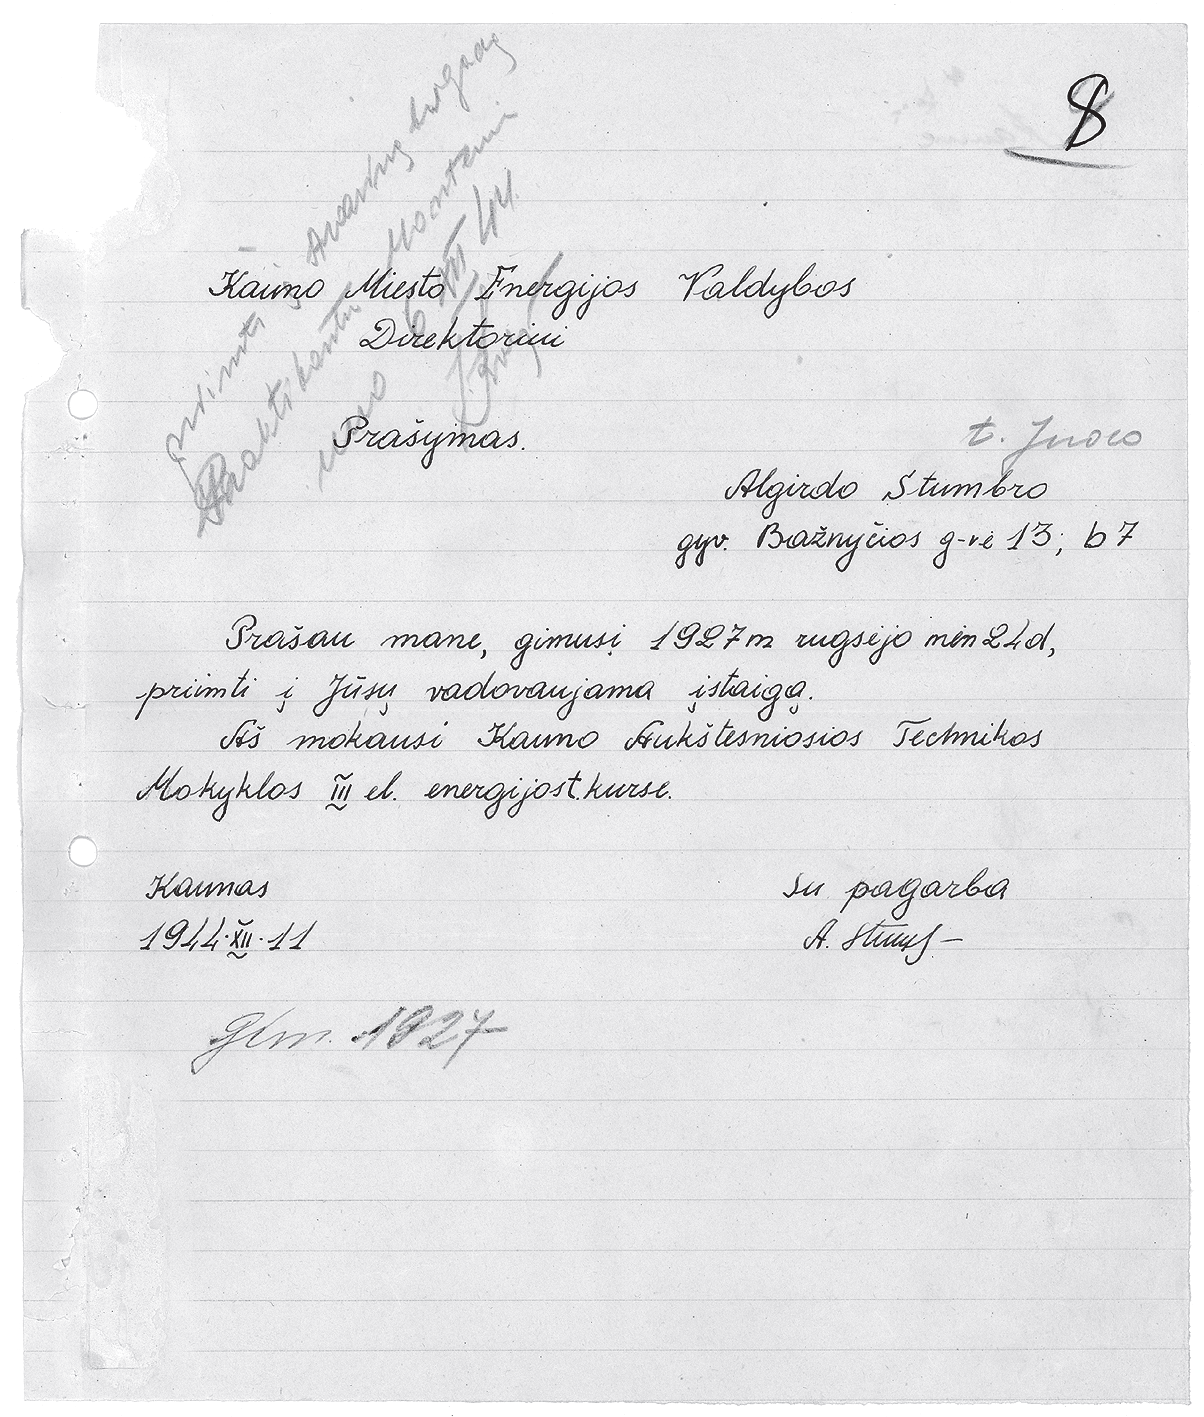 8
Kauno Miesto Energijos Valdybos
Direktoriui
Prašymas.
t. Juozo
Algirdo Stumbro
gyv. Bažnyčios g-vė 13; b 7
Prašau mane, gimusį 1927 m rugsėjo mėn 24 d,
priimti į Jūsų vadovaujama įstaigą.
Aš mokausi Kauno Aukštesniosios Technikos
Mokyklos III el. energijos t. kurse.
Kaunas
Su pagarba
1944·XII·11
A. Stum
Gim. 1927
priimti į Avarinę brigadą
Praktikantu Monteriu
nuo XII 44.